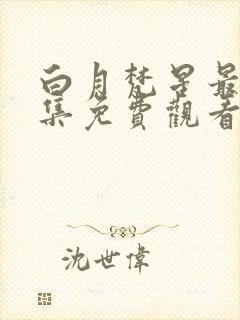 白月梵星最
集免費觀看
沈世偉